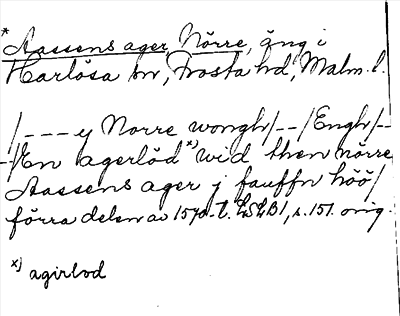 * Aassens ager, Nörre, äng i
Harlösa sn, Frosta hd, Malm. l.
/---- y Norre wongh/--/Engh/--
-/En agerlöd *) wid then nörre
Aassens ager j fauffn höö/
förra delen av 1570-t. LSLB1, s. 151. orig.
x) agirlod